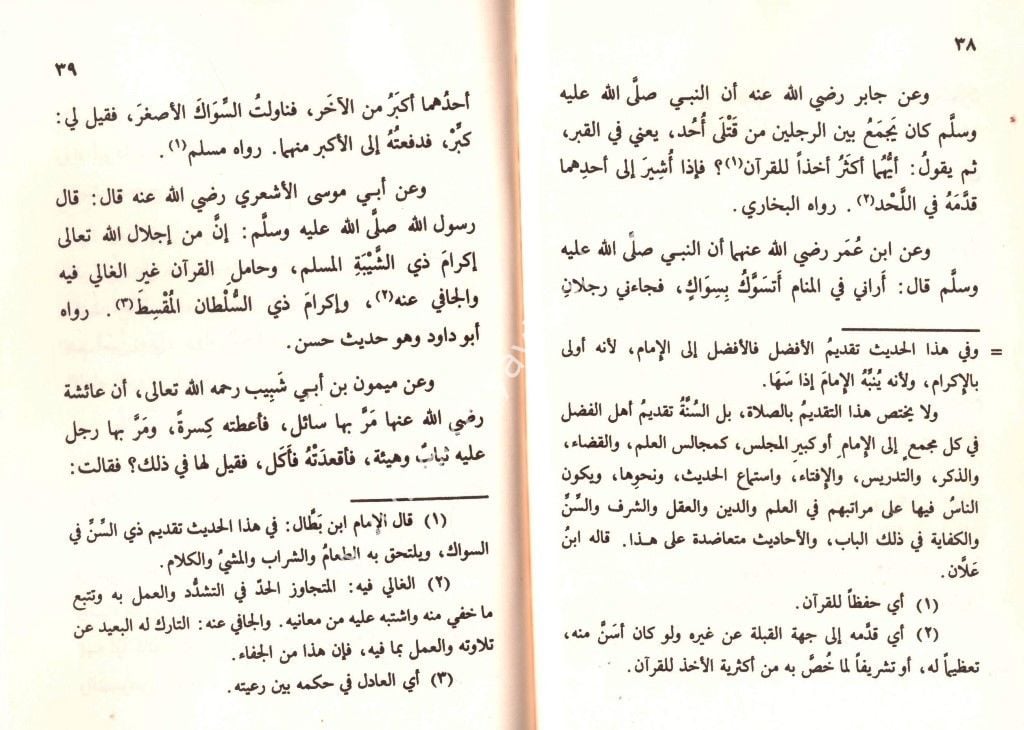 ٣٨
وعن جابر رضي الله عنه أن النبـي صلَّى الله عليه
وسلَّم كان يَجمَعُ بين الرجلين من قَتْلَى أُحُد، يعني في القبر،
ثم يقولُ: أيُّهُما أكثَرُ أخذاً للقرآن(١)؟ فإذا أُشِيرَ إلى أحدِهما
قدَّمَهُ في اللَّحْد(٢). رواه البخاري.
وعن ابن عُمَر رضي الله عنهما أن النبـي صلَّى الله عليه
وسلَّم قال: أَراني في المنام أَتَسوَّكُ بِسِواكٍ، فجاءني رجلانِ
= وفي هذا الحديث تقديمُ الأفضل فالأفضل إلى الإمام، لأنه أولى
بالإكرام، ولأنه يُنبِّهُ الإمامَ إذا سَهَا.
ولا يختص هذا التقديمُ بالصلاة، بل السُنَّةُ تقديمُ أهل الفضل
في كل مجمع إلى الإمامِ أو كبيرِ المجلس، كمجالس العلم، والقضاء،
والذكر، والتدريس، والإفتاء، واستماع الحديث، ونحوِها، ويكون
الناسُ فيها على مراتبهم في العلم والدين والعقل والشرف والسِّنِّ
والكفاية في ذلك الباب، والأحاديث متعاضدة على هـذا. قاله ابنُ
عَلَّان.
(١) أي حفظاً للقرآن.
(٢) أي قدَّمه إلى جهة القبلة عن غيره ولو كان أسَنَّ منه،
تعظيماً له، أو تشريفاً لما خُصَّ به من أكثرية الأخذ للقرآن.
٣٩
أحدُهما أكبَرُ من الآخَر، فناولتُ السِّوَاكَ الأصغرَ، فقيل لي:
كبِّرْ، فدفعتُهُ إلى الأكبر منهما. رواه مسلم(١).
وعن أبـي موسى الأشعري رضي الله عنه قال: قال
رسول الله صلَّى الله عليه وسلَّم: إنَّ من إجلال الله تعالى
إكرامَ ذي الشَّيْبَةِ المسلم، وحاملِ القرآن غيرِ الغالي فيه
والجافي عنه(٢)، وإكرامَ ذي السُّلْطان المُقْسِط(٣). رواه
أبو داود وهو حديث حسن.
وعن ميمون بن أبـي شَبِيب رحمه الله تعالى، أن عائشة
رضي الله عنها مَرَّ بها سائل، فأعطته كِسرةً، ومَرَّ بها رجل
عليه ثيابٌ وهيئة، فأقعدَتْهُ فأَكَل، فقيل لها في ذلك؟ فقالت:
(١) قال الإمام ابن بَطَّال: في هذا الحديث تقديم ذي السِّنِّ في
السواك، ويلتحق به الطعامُ والشراب والمشيُ والكلام.
(٢) الغالي فيه: المتجاوز الحدّ في التشدُّد والعمل به وتتبع
ما خفي منه واشتبه عليه من معانيه. والجافي عنه: التارك له البعيد عن
تلاوته والعمل بما فيه، فإن هذا من الجفاء.
(٣) أي العادل في حكمه بين رعيته.